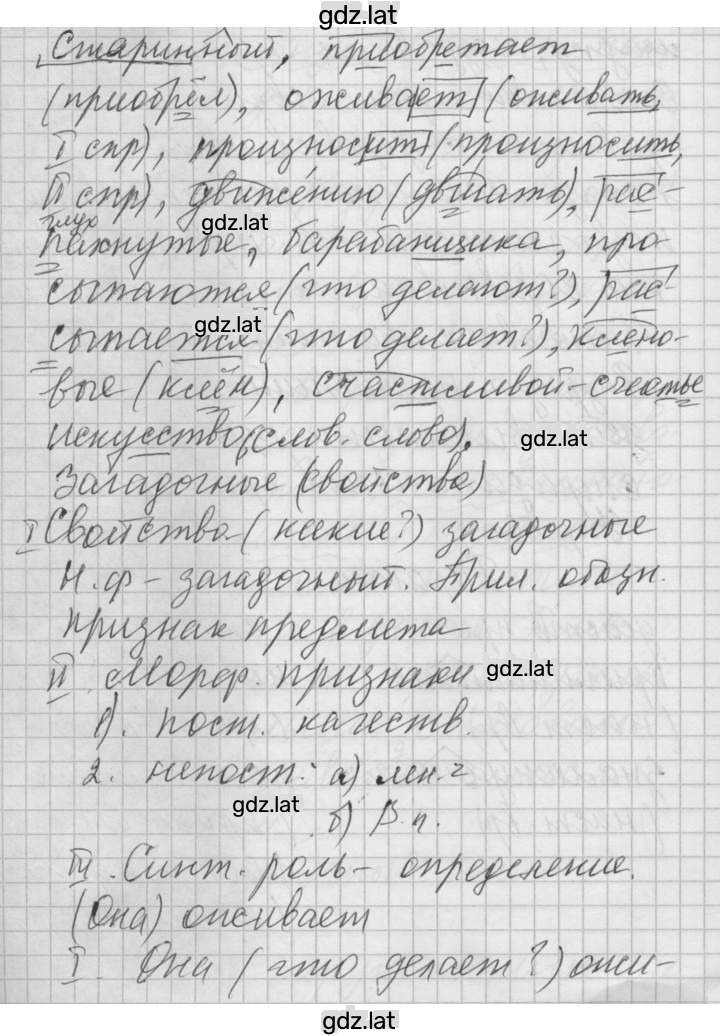 gdz.lat
Старинный, приобретает
(приобрёл), оживает (оживать,
I спр), произносит (произносить,
II спр), движению (двигать), рас-
глух
gdz.lat
пахнутые, барабанщика, про
сыпаются (что делают?), рас-
gdz.lat
сыпается (что делает?), клено-
вые (клён), счастливой - счастье
искусство (слов. слово). gdz.lat
Загадочные (свойства)
I Свойства (какие?) загадочные
Н. ф - загадочный. Прил. обозн.
признак предмета
II. Морф. признаки gdz.lat
1). пост. качеств.
2. непост: а) мн. ч
gdz.lat
б) В. п.
III. Синт. роль - определение.
(Она) оживает
I. Она (что делает?) ожи-
gdz.lat